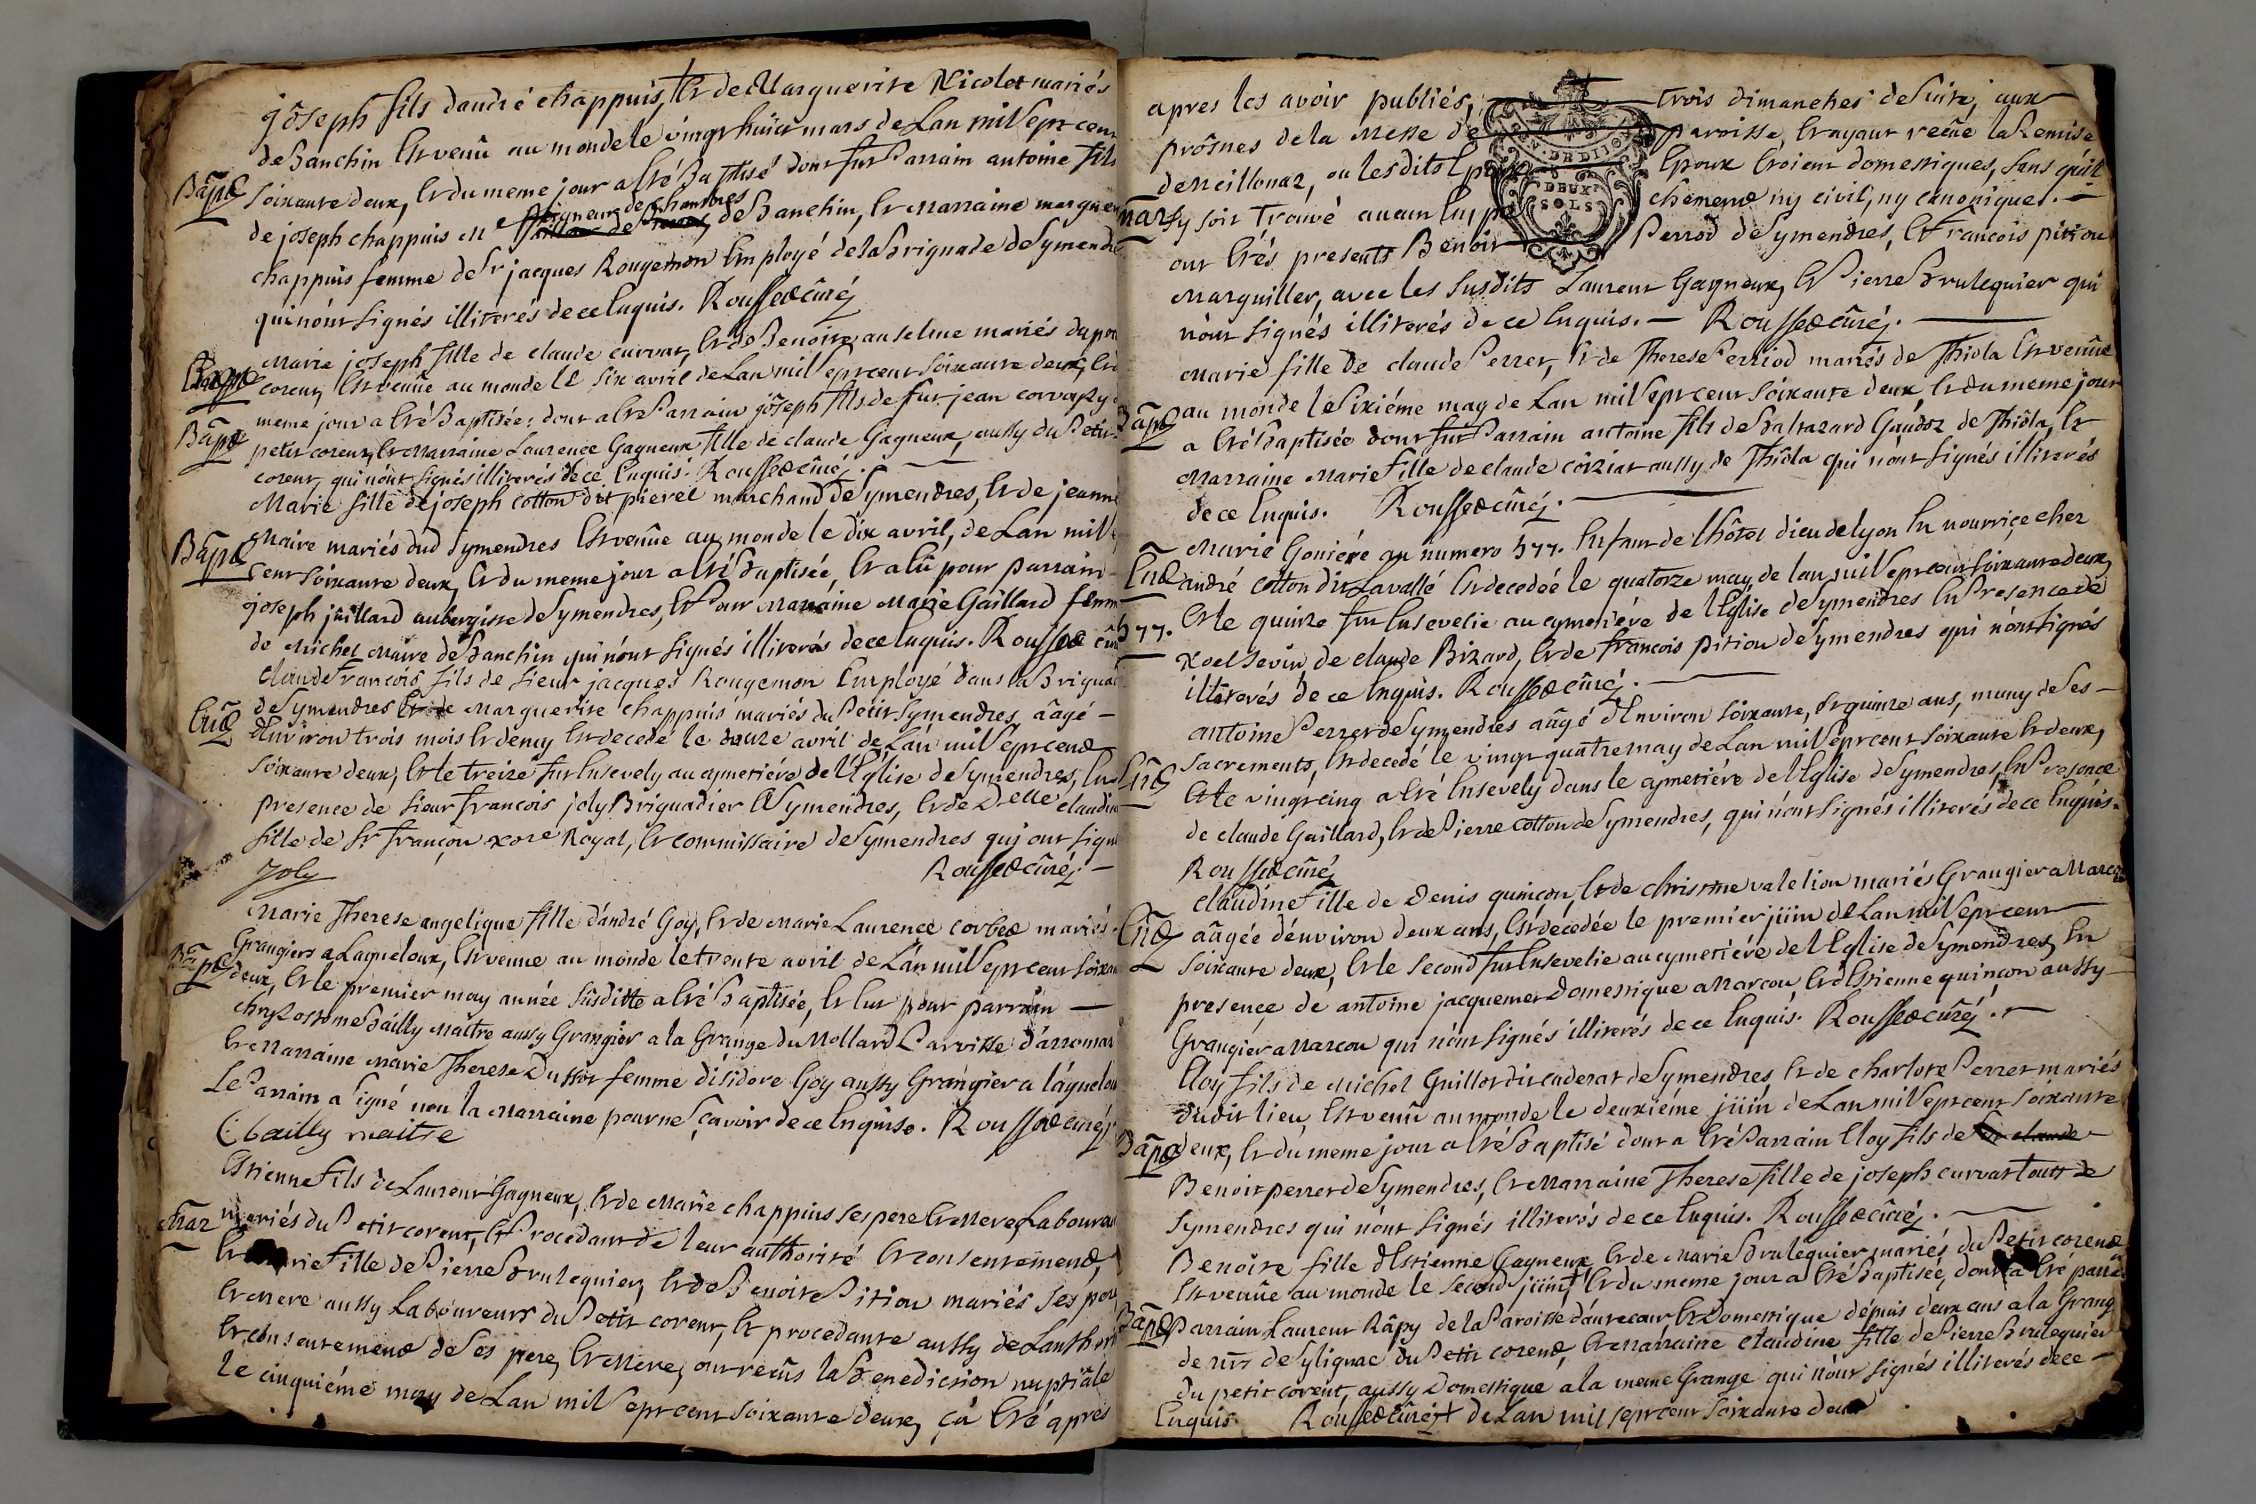 joseph fils dandré chappuis, Et de Marguerite Nicolet mariés
de Banchin Est venû au monde le vingt huict mars de Lan mil Sept cent
Bapt
Soixante deux, Et du meme jour a Eté Baptisé dont fut Parrain antoine fils
de joseph chappuis Me de Banchin, Et Marraine marguerite
chappuis femme de Sr jacques Rougemon Employé de la Briguade de Symendre
qui n'ont Signés illiterés de ce Enquis. Roussed curé
Marie joseph fille de claude curvat, Et de Benoite anselme mariés du petit
corent, Est venüe au monde le Six avril de Lan mil Sept cent Soixante deux, Et du
meme jour a Eté Baptisée; dont a Eté Parrain joseph fils de fut jean
Bapt
petit corent, Et Marraine Laurence Gagneux fille de claude Gagneux, aussy du Petit
corent, qui n'ont Signés illiterés de ce Enquis. Roussed curé.
Marie fille de joseph cotton dit pierel marchand de Symendres, Et de jeanne
Maire mariés dud Symendres Est venüe au monde le dix avril, de Lan mil Sept
Bapt
cent Soixante deux, Et du meme jour a Eté Baptisée, Et a Eû pour parrain
joseph juillard aubergiste de Symendres, Et Pour Marraine Marie Gaillard femme
de Michel Maire de Banchin qui n'ont Signés illiterés de ce Enquis. Roussed curé
Claude François fils de Sieur jacques Rougemon Employé dans la Briguade
de Symendres Et de Marguerite chappuis mariés du Petit Symendres, âagé
Ent
d'Environ trois mois Et demy Est decedé le douze avril de Lan mil Sept cent
Soixante deux, Et le treize fut Ensevely au cymetiére de l'Eglise de Symendres, En
presence de Sieur François joly Briguadier a Symendres, Et de Delle claudine
fille de Sr Françon Royal, Et commissaire de Symendres qui ont Signé
Joly Roussed curé.
Marie Therese angelique fille d'andré Goy, Et de Marie Laurence corbet mariés
Grangiers a Laqueloux, Est venue au monde le trente avril de Lan mil Sept cent Soixante
Bapt
deux, Et le premier may année Susditte a Eté Baptisée, Et Eut pour parrain
chrysostome Bailly Maitre aussy Grangier a la Grange du Mollard Parroisse d'arromas
Et Marraine Marie Therese Dussot femme d'isidore Goy aussy Grangier a laqueloux
Le Parrain a signé non la Marraine pour ne Sçavoir de ce Enquise. Roussed curé
C. bailly maitre
Estienne fils de Laurent Gagneux, Et de Marie chappuis Ses pere Et Mere, Laboureurs
Mar
mariés du Petit corent, Et Procedant de leur authorité Et consentement,
Et Marie fille de Pierre Brulequier, Et de Benoite Pition mariés Ses pere
Et Mere aussy Laboureurs du Petit corent, Et procedante aussy de Lauthorité
Et consentement de Ses pere, Et Mere, ont recûs la Benediction nuptiâle
le cinquiéme may de Lan mil Sept cent Soixante deux, çà Eté après
apres les avoir publiés, trois dimanches de Suite, aux
prôsnes de la Messe de paroisse, Et ayant recûe la Remise
de Meillonaz, ou lesdits Epoux Etoient domestiques, Sans qu'il
Mar
sy soit trouvé aucun Empechement ny civil, ny canonique.
ont Etés presents Benoit Perrod de Symendres, Et Francois pition
Marguiller, avec les Susdits Laurent Gagneux, Et Pierre Brulequier qui
n'ont Signés illiterés de ce Enquis. Roussed curé.
GEN. DE DIJON
DEUX
SOLS
Marie fille de claude Perret, Et de Therese Perriod mariés de Thiola Est venüe
au monde le Sixiéme may de Lan mil Sept cent Soixante deux, Et du meme jour
Bapt
a Eté Baptisée dont fut Parrain antoine fils de Baltazard Gaudoz de Thiôla, Et
Marraine Marie fille de claude côiziat aussy de Thiôla qui n'ont Signés illiterés
de ce Enquis. Roussed curé.
Marie Goniére au numero 577. Enfant de l'hôtel dieu de lyon En nourrice chez
Ent
andré cotton dit Lavallé Est decedeé le quatorze may, de lan mil Sept cent Soixante deux,
Et le quinze fut Ensevelie au cymetiére de l'Eglise de Symendres En Presence de
577.
Noel Sevin de claude Bizard, Et de francois pition de Symendres qui n'ont Signés
illiterés de ce Enquis. Roussed curé.
antoine Perret de Symendres aâgé d'Environ Soixante, Et quinze ans, muny de Ses
Sacrements, Est decedé le vingt quatre may de Lan mil Sept cent Soixante Et deux,
Ent
Et le vingt cinq a Eté Ensevely dans le cymetiére de l'Eglise de Symendres, En Presence
de claude Gaillard, Et de Pierre cotton de Symendres, qui n'ont Signés illiterés de ce Enquis.
Roussed curé
claudine fille de Denis quinçon, Et de christine valetion mariés Grangier a Marcou
Ent
aâgée d'environ deux ans, Est decedée le premier juin de Lan mil Sept cent
Soixante deux, Et le Second fut Ensevelie au cymetiére de l'Eglise de Symendres, En
presence de antoine jacquemet Domestique a Marcou, Et d'Estienne quinçon aussy
Grangier a Marcou qui n'ont Signés illiterés de ce Enquis. Roussed curé.
Eloy fils de Michel Guillot dit caderat de Symendres Et de charlote Perret mariés
dudit lieu, Est venû au monde le deuxiéme juin de Lan mil Sept cent Soixante
Bapt
deux, Et du meme jour a Eté Baptisé dont a Eté Parrain Eloy fils de
Benoit perret de Symendres, Et Marraine Therese fille de joseph curvat touts de
Symendres qui n'ont Signés illiterés de ce Enquis. Roussed curé.
Benoite fille d'Estienne Gagneux, Et de Marie Brulequier mariés du Petit corent
Est venüe au monde le Second juin Et du meme jour a Eté Baptisée, dont a Eté
Bapt
Parrain Laurent Râpy de la Paroisse d'autecour Et Domestique dépuis deux ans a la Grange
de Mr de Sylignac du Petit corent, Et Marraine claudine fille de Pierre Brulequier
du petit corent, aussy Domestique a la meme Grange qui n'ont Signés illiterés de ce
Enquis. Roussed curé de Lan mil Sept cent Soixante deux